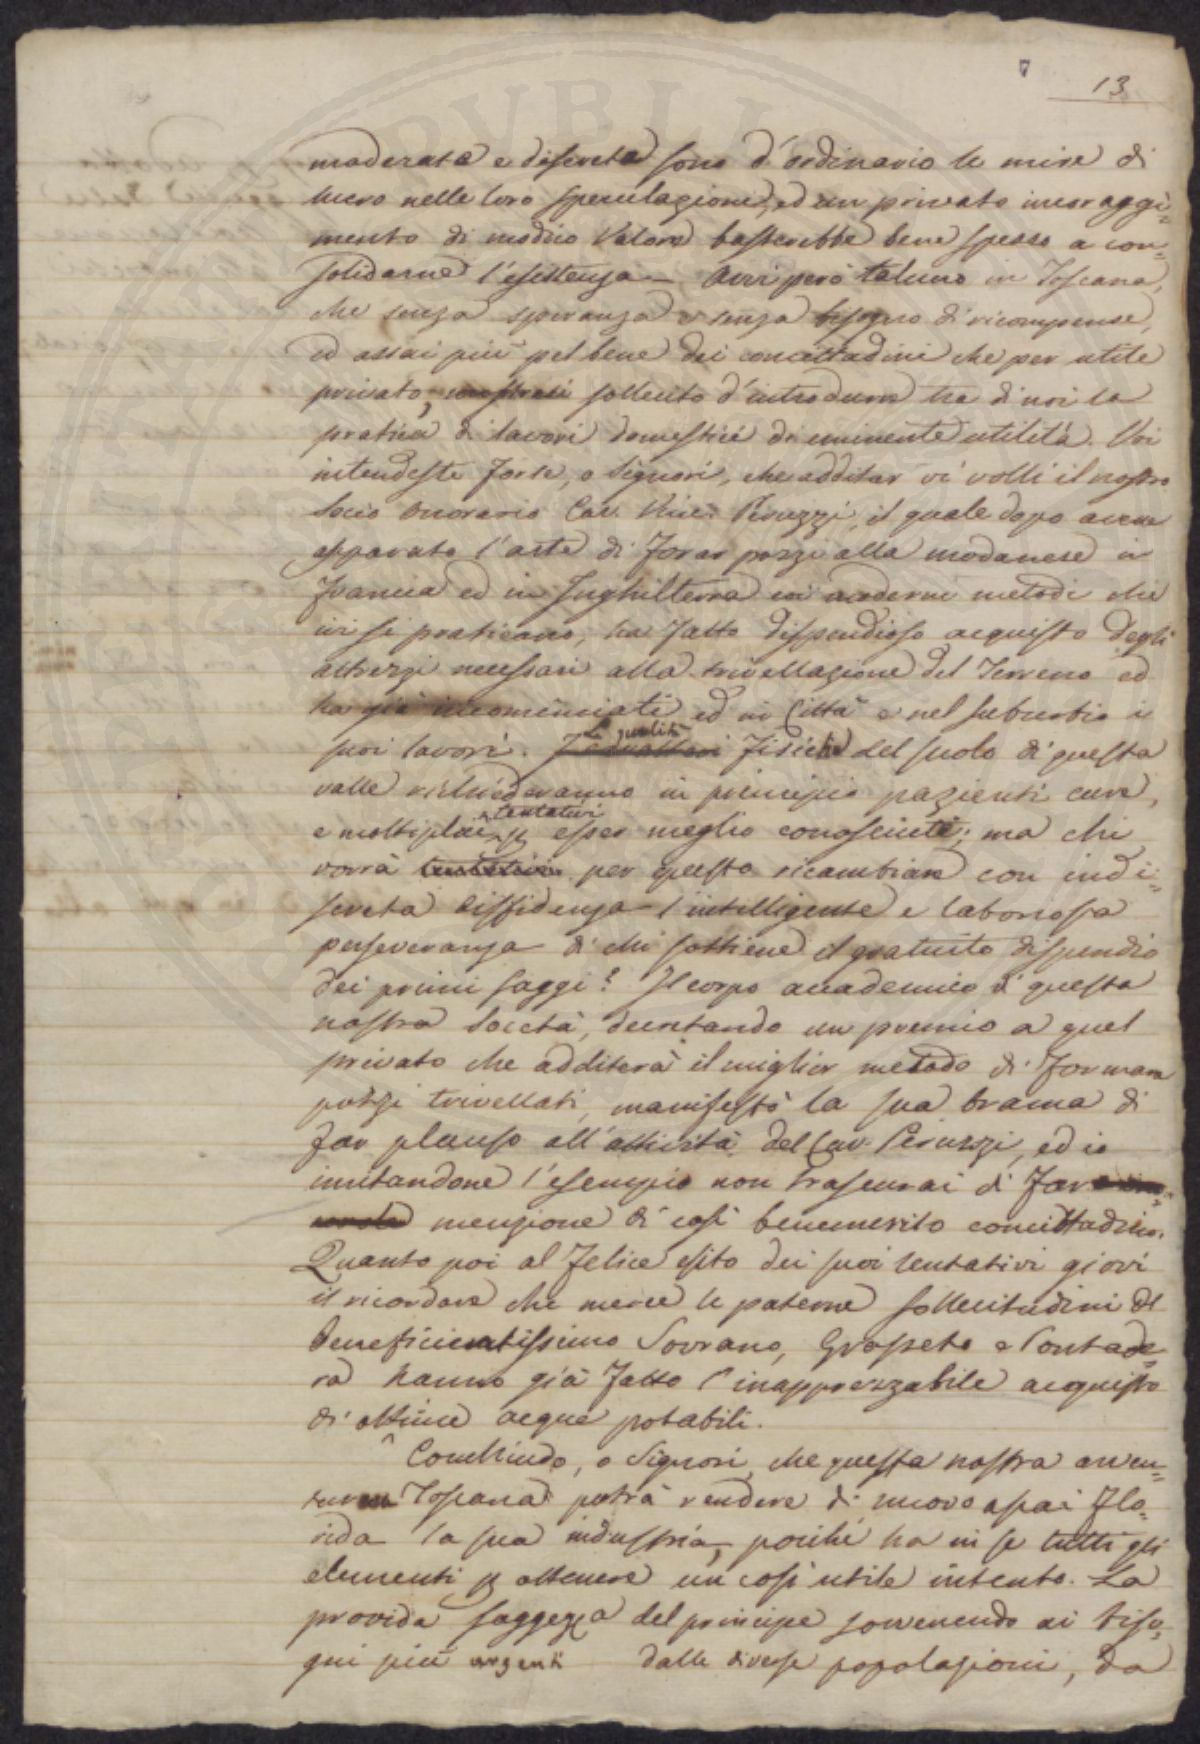 13
moderate e discrete sono d'ordinario le mire di
lucro nelle loro speculazioni, ed un privato incoraggi=
mento di modico valore basterebbe bene spesso a con=
solidarne l'esistenza – Avvi però taluno in Toscana,
che senza speranza e senza bisogno di ricompense,
ed assai più pel bene dei concittadini che per utile
privato, mostrasi sollecito d'introdurre tra di noi la
pratica di lavori domestici di eminente utilità. Voi
intendeste forse, o Signori, che additar vi volli il nostro
Socio Onorario Cav. Vinc. Peruzzi, il quale dopo avere
apparato l'arte di forar pozzi alla modanese in
Francia ed in Inghilterra coi moderni metodi che
ivi si praticano, ha fatto dispendioso acquisto degli
attrezzi necessari alla trivellazione del Terreno ed
ha già incominciati ed in Città e nel suburbio i
suoi lavori. Le qualità fisiche del suolo di questa
valle richiederanno in principio pazienti cure,
e moltiplici tentativi p esser meglio conosciute; ma chi
vorrà per questo ricambiare con indi=
screta diffidenza l'intelligente e laboriosa
perseveranza di chi sostiene il gratuito dispendio
dei primi saggi? Il corpo accademico di questa
nostra Società, decretando un premio a quel
privato che additerà il miglior metodo di formare
pozzi trivellati, manifestò la sua brama di
far plauso all'attività del Cav. Peruzzi, ed io
imitandone l'esempio non trascurai di far
menzione di così benemerito concittadino.
Quanto poi al felice esito dei suoi tentativi giovi
il ricordare che mercè le paterne sollecitudini del
Beneficientissimo Sovrano, Grosseto e Pontade=
ra hanno già fatto l'inapprezzabile acquisto
di ottime acque potabili.
Conchiudo, o Signori, che questa nostra avven=
turosa Toscana potrà rendere di nuovo assai flo=
rida la sua industria, poiché ha in se tutti gli
elementi p ottenere un così utile intento. La
provida saggezza del principe sovvenendo ai biso=
gni più urgenti dalle diverse popolazioni, da